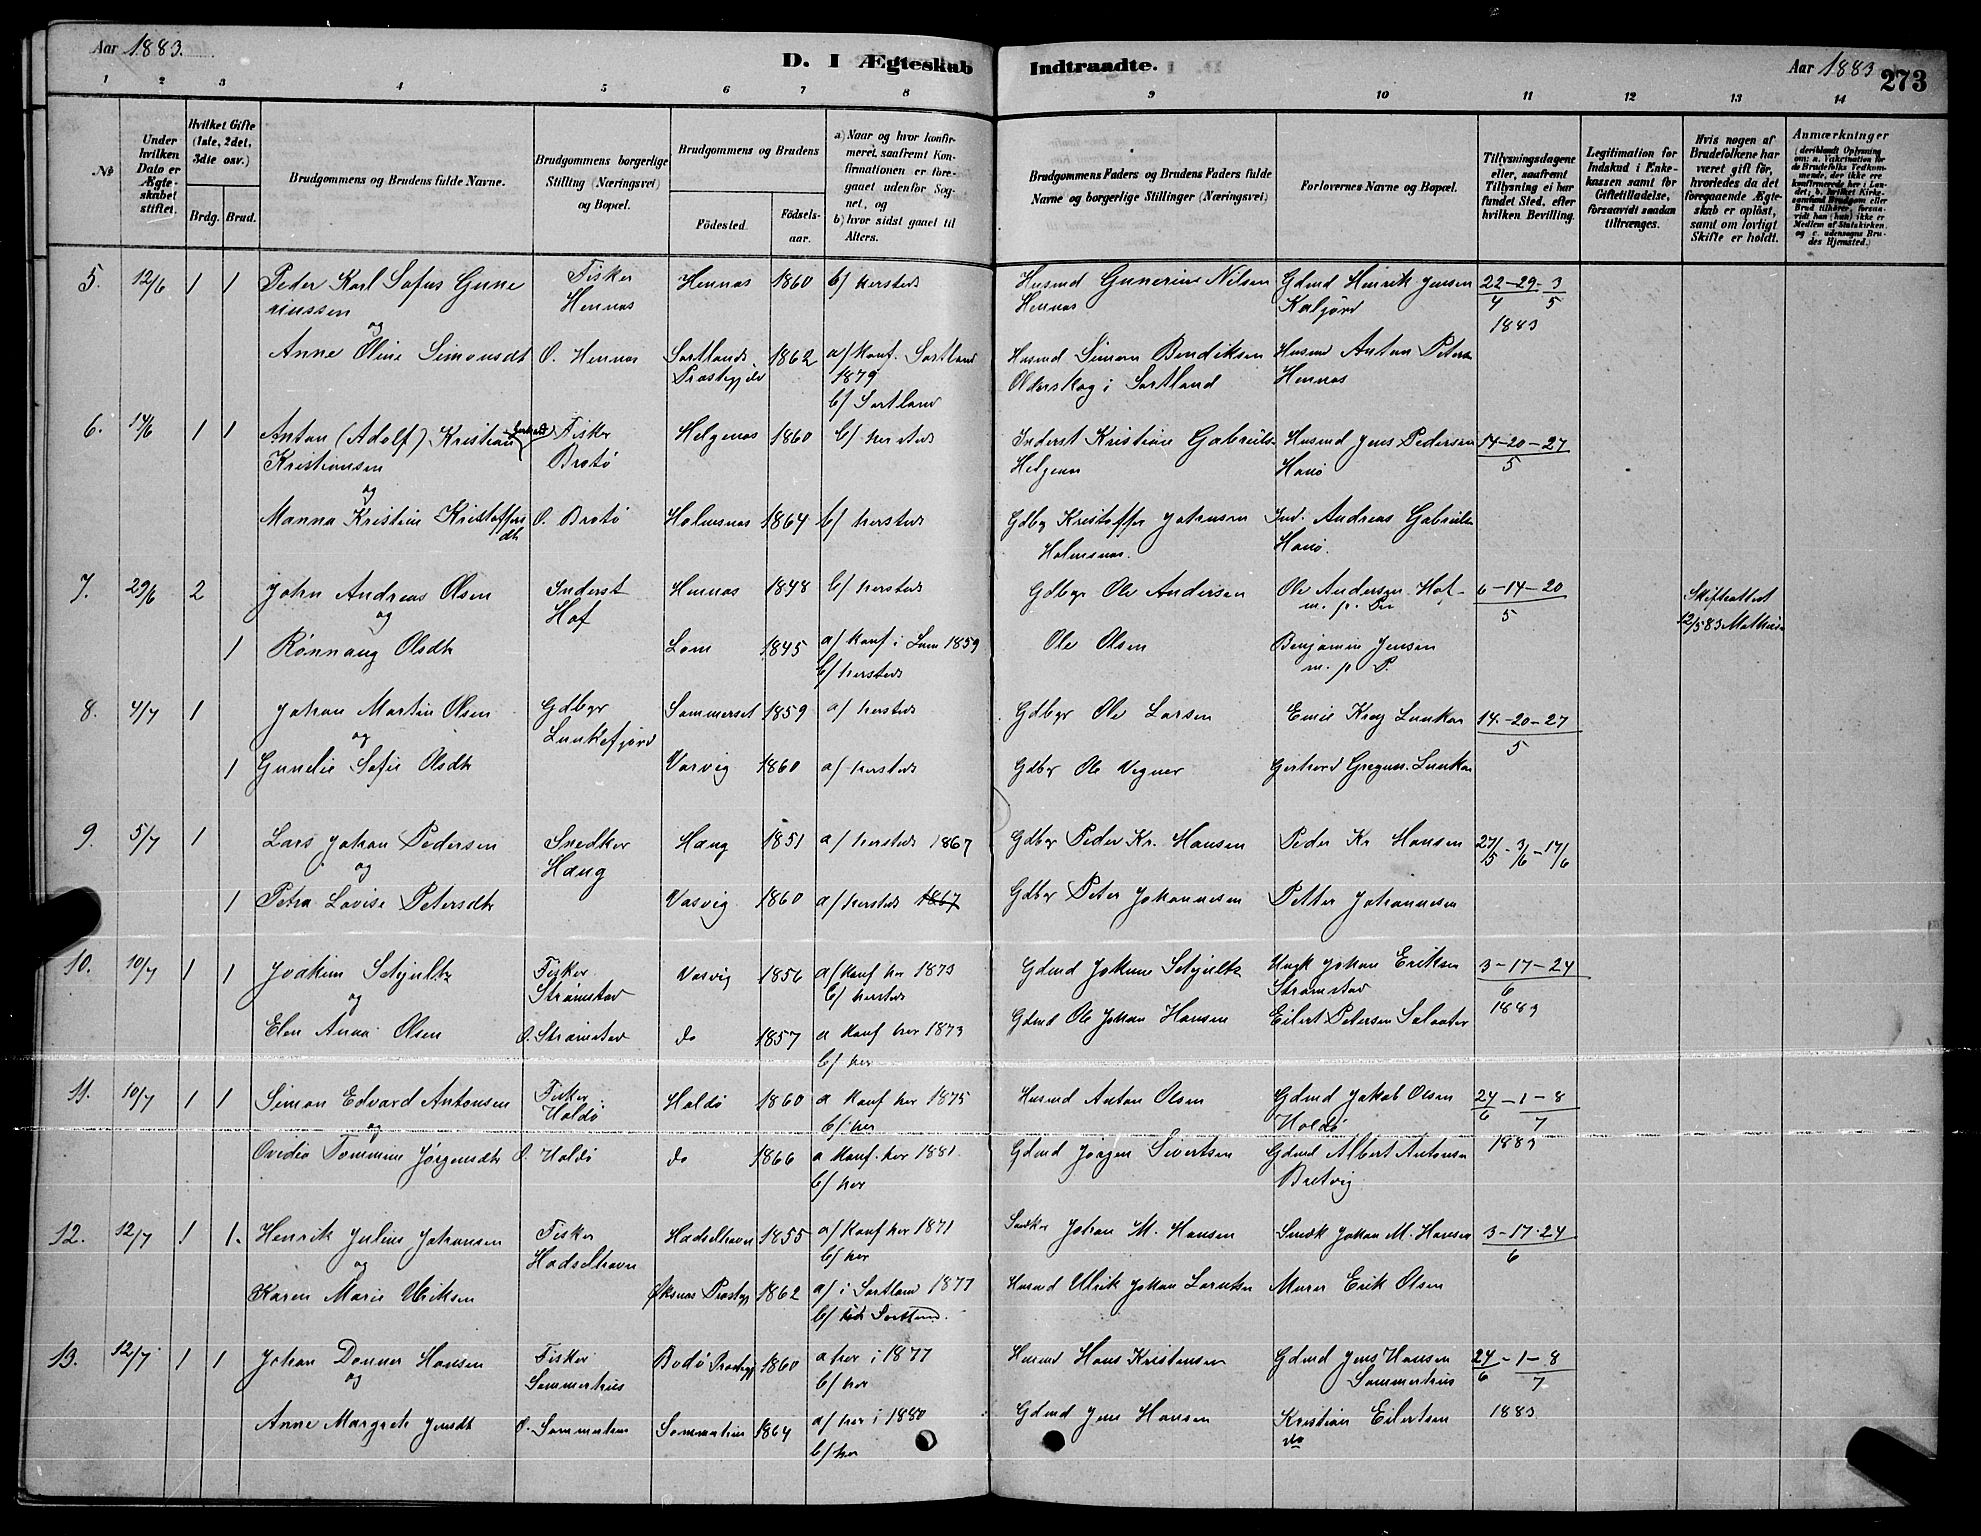 Aar 1883.
D. I Ægteskab Indtraadte.
Aar 1883
273
1 2 3 4 5 6 7 8 9 10 11 12 13 14
No
Under hvilken Dato er Ægteskabet stiftet.
Hvilket Gifte (1ste, 2det, 3die osv.)
Brdg. Brud.
Brudgommens og Brudens fulde Navne.
Brudgommens borgerlige Stilling (Næringsvei) og Bopæl.
Brudgommens og Brudens
Födested. Födselsaar.
a) Naar og hvor konfirmeret, saafremt Konfirmationen er foregaaet udenfor Sognet, og
b) hvor sidst gaaet til Alters.
Brudgommens Faders og Brudens Faders fulde Navne og borgerlige Stillinger (Næringsvei)
Forlovernes Navne og Bopæl.
Tillysningsdagene eller, saafremt Tillysning ei har fundet Sted, efter hvilken Bevilling.
Legitimation for Indskud i Enkekassen samt for Giftetilladelse, forsaavidt saadan tiltrænges.
Hvis nogen af Brudefolkene har været gift før, hvorledes da det foregaaende Ægteskab er opløst, samt om lovligt Skifte er holdt.
Anmærkninger (deriblandt Oplysning om: a. Vakcination for de Brudefolks Vedkommende, der ikke ere konfirmerede her i Landet; b. hvilket Kirkesamfund Brudgom eller Brud tilhører, forsaavidt han (hun) ikke er Medlem af Statskirken, og c. udensogns Brudes Hjemsted.)
5. 12/6 1 1 Peder Karl Sofus Gune Fisker Hennæs 1860 b/ hersteds Husmd Gunerius Nilsen Gdmd Hinrik Jensen 22-29- 3
riussen Hennæs Hennæs Kaljord 4 5
og 1883
Anne Oline Simonsdt O. Hennæs Sortlands 1862 a/ Konf. Sortland Husmd Simon Bendiksen Husmd Anton Peters
Præstegjeld 1879 Olderskog i Sortland Hennæs
b/ Sortland
6. 14/6 1 1 Anton (Adolf) Kristian Fisker Helgenæs 1860 b/ hersteds Inderst Kristian Gabriels Husmd Jens Pedersen 14-20-27
Kristiansen Brotø Helgenæs Hanø 5
og
Manna Kristine Kristoffers O. Brotø Holmsnæs 1864 b/ hersteds Gdbgr Kristoffer Johnsen Ind. Andreas Gabriels
dt Holmsnæs. Hanø.
7. 29/6 2 Johan Andreas Olsen Inderst Hennæs 1848 b/ hersteds Gdbgr Ole Andersen Ole Andersen Hof 6-14-20
og Hof m. p. Pen 5 Skifteattest
1 Rønnaug Olsdt Lom 1845 a/ Konf i Lom 1859 Ole Olsen Benjamin Jensen 12/5 83 Mathiesen
b/ hersteds m. p. P.
8. 4/7 1 Johan Martin Olsen Gdbgr Sommerset 1859 a/ hersteds Gdbgr Ole Larsen Emil Krog Lunkan 14-20-27
og Lunkefjord 5
1 Gunelie Sofie Olsdt Vasvig 1860 a/ hersteds Gdbgr Ole Vegner Gerhard Gregus. Lunkan
9. 5/7 1 Lars Johan Pedersen Snedker Haug 1851 a/ hersteds 1867 Gdbgr Peder Kr. Hansen Peder Kr Hansen 27/5 - 3/6 - 17/6
og Haug
1 Petra Lovise Petersdt Vasvig 1860 a/ hersteds 1867 Gdbgr Peter Johannesen Petter Johannesen
10. 10/7 1 1 Joakim Schjultz Fisker Vasvig 1856 a/ Konf her 1873 Gdmd Jokum Schjultz Ungk Johan Eriksen 3-17-24
og Strømstad b/ hersteds Strømstad 6
Elen Anna Olsen O. Strømstad do 1857 a Konf her 1873 Gdmd Ole Johan Hansen Eilert Petersen Salaater 1883
b/ her
11. 10/7 1 1 Simon Edvard Antonsen Fisker Holdø 1860 a Konf her 1875 Husmd Anton Olsen Gdmd Jakob Olsen 24 - 1 - 8
og Holdø b/ her Holdø 6 7
Ovidia Tommine Jørgensdt O. Holdø do 1866 a Konf. her 1881. Gdmd Jørgen Sivertsen Gdmd Albert Antonsen 1883
b/ her Bretvig
12. 12/7 1 1. Henrik Julius Johansen Fisker Hadselhavn 1855 a/ Konf her 1871 Snedker Johan M. Hansen Snedk Johan M. Hansen 3-17-24
og Hadselhavn b/ her 6
Karen Marie Ulriksen Øksnæs Præstegj 1862 a/ i Sortland 1877 Husmd Ulrik Johan Larntzen Murer Erik Olsen
b/ her Sortland.
13. 12/7 1 1 Johan Donner Hansen Fisker Bodø Præstegj 1860 a her i 1877 Husmd Hans Kristensen Gdmd Jens Hansen 24 - 1 - 8
og Sommerhus b/ her Sommerhus 6 7
Anne Margrete Jensdt O. Sommerhus Sommerhus 1864 a/ her i 1880 Gdmd Jens Hansen Kristian Eilertsen 1883
b/ her do